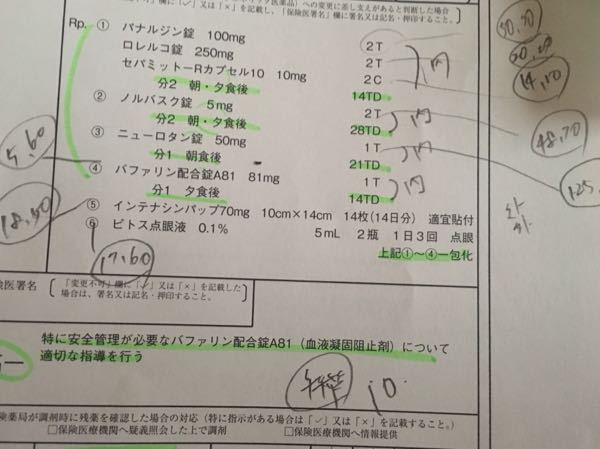 イック医薬品）への変更に差し支えがあると判断した場合
可」欄に「✓」又は「×」を記載し、「保険医署名」欄に署名又は記名・押印すること。
Rp. ① パナルジン錠 100mg 2T
ロレルコ錠 250mg 2T
セパミットーRカプセル10 10mg 2C
分2 朝・夕食後 14TD
② ノルバスク錠 5mg 2T
分2 朝・夕食後 28TD
③ ニューロタン錠 50mg 1T
分1 朝食後 21TD
④ バファリン配合錠A81 81mg 1T
分1 夕食後 14TD
⑤ インテナシンパップ70mg 10cm×14cm 14枚(14日分) 適宜貼付
⑥ ピトス点眼液 0.1% 5mL 2瓶 1日3回 点眼
上記①～④一包化
14,10
48,70
5,60
18,50
17,60
険医署名
「変更不可」欄に「✓」又は「×」を記載した
場合は、署名又は記名・押印すること。
特に安全管理が必要なバファリン配合錠A81（血液凝固阻止剤）について
適切な指導を行う
10
険薬局が調剤時に残薬を確認した場合の対応（特に指示がある場合は「✓」又は「×」を記載すること。）
□保険医療機関へ疑義照会した上で調剤 □保険医療機関へ情報提供